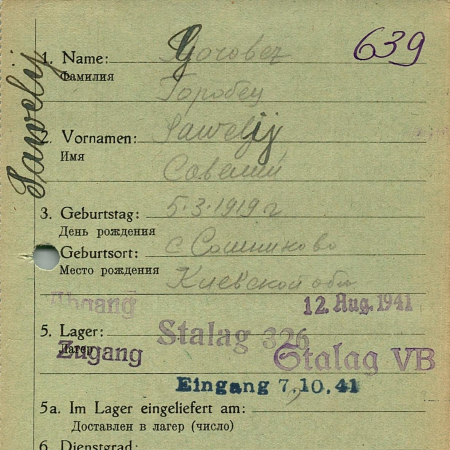 639
Sawelij
1. Name:
Фамилия
Горобец
2. Vornamen: Sawelij
Имя
Савелий
3. Geburtstag: 5.3.1919 г
День рождения
Geburtsort: с. Сошниково
Место рождения
Киевской обл
Abgang 12. Aug. 1941
5. Lager: Stalag 326
Лагерь
Zugang Stalag VB
Eingang 7.10.41
5a. Im Lager eingeliefert am:
Доставлен в лагерь (число)
6. Dienstgrad: